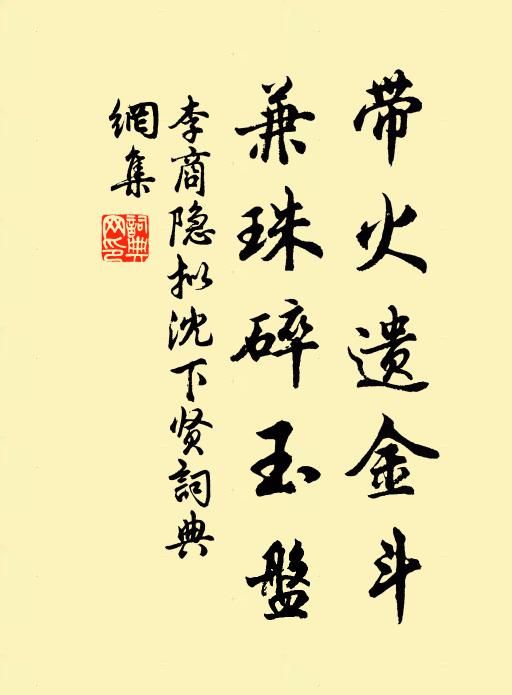 带火遗金斗
兼珠碎玉盤
李商隐拟沈下贤詞典
網集
詞典
网印